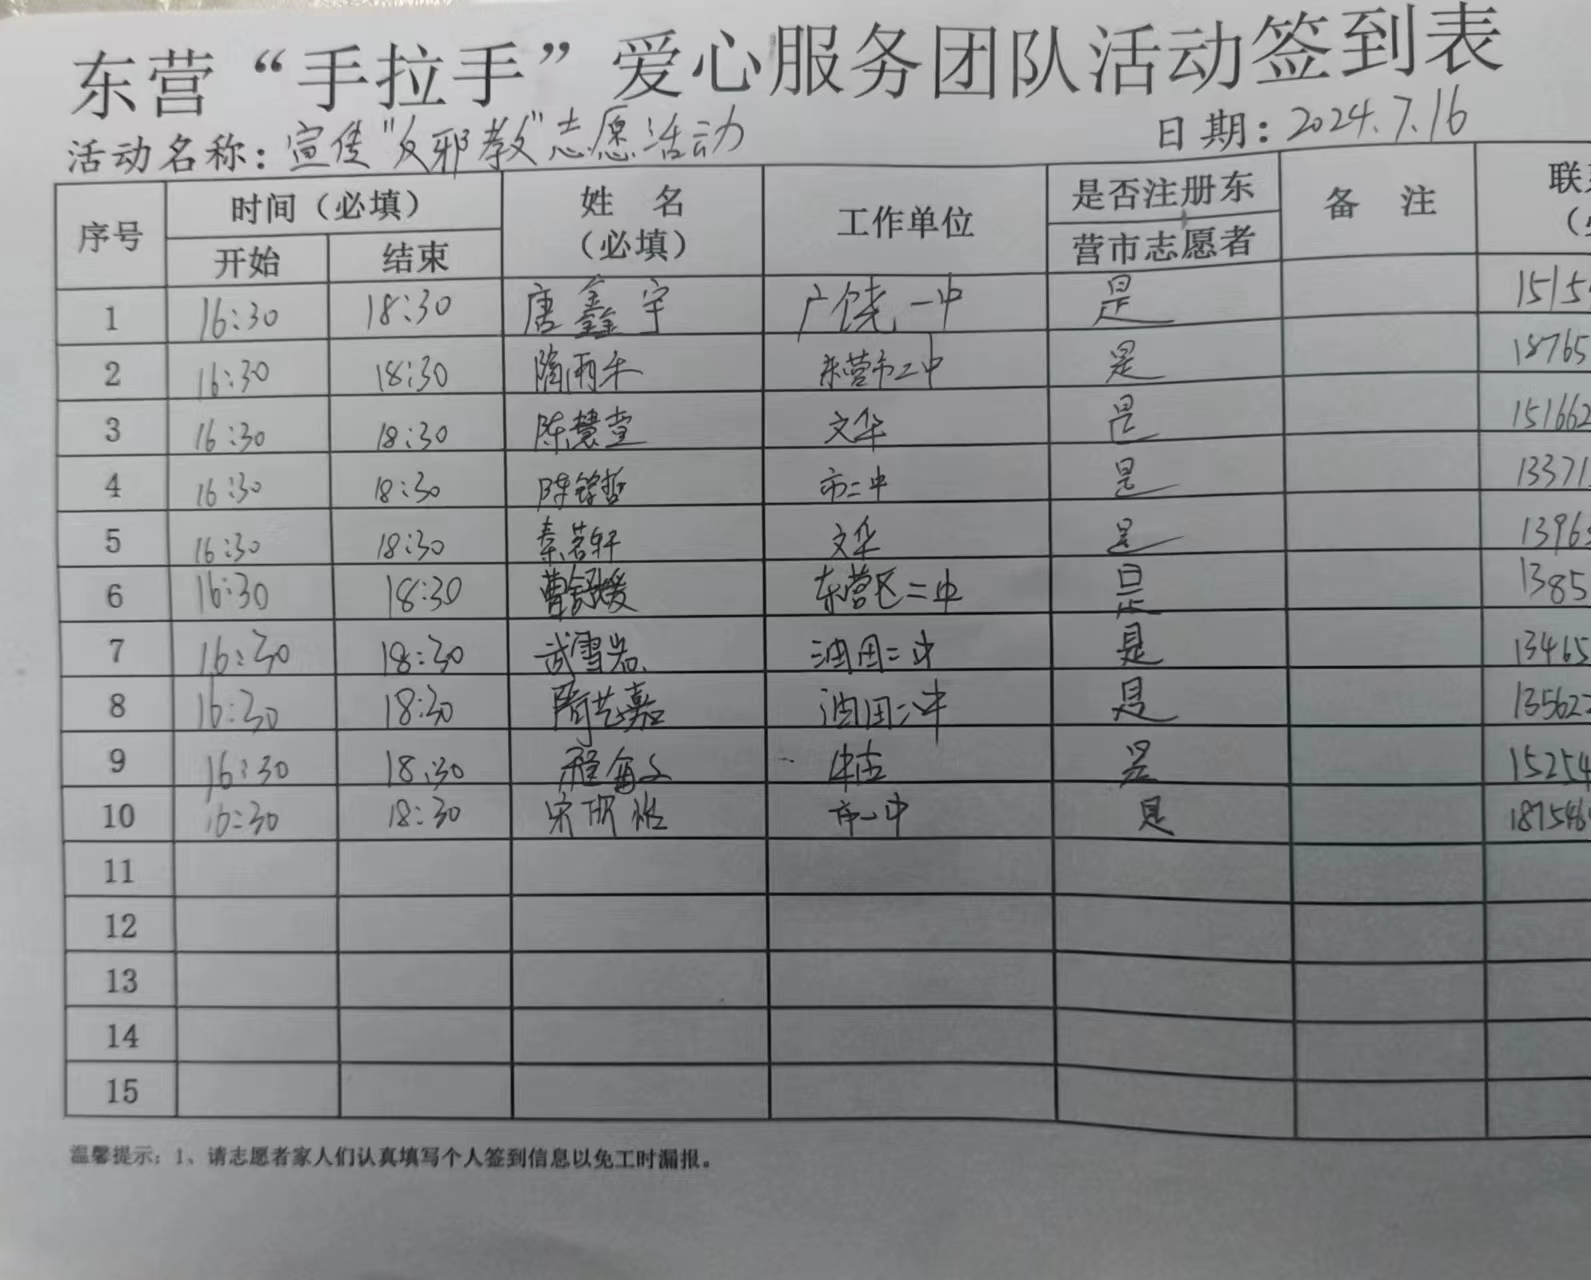 东营“手拉手”爱心服务团队活动签到表
活动名称：宣传“反邪教”志愿活动 日期：2024.7.16
序号 时间（必填） 姓 名（必填） 工作单位 是否注册东营市志愿者 备 注
开始 结束
1 16:30 18:30 唐鑫宇 广饶一中 是 1515
2 16:30 18:30 隋雨禾 东营市二中 是 18765
3 16:30 18:30 陈慧萱 文华 是 151662
4 16:30 18:30 陈铭哲 市二中 是 13371
5 16:30 18:30 秦茗轩 文华 是 1396
6 16:30 18:30 曹舒媛 东营区二中 是 1385
7 16:30 18:30 武雪岩 油田二中 是 13465
8 16:30 18:30 隋艺嘉 油田二中 是 135622
9 16:30 18:30 程 是 15254
10 16:30 18:30 宋 市一中 是 187546
11
12
13
14
15
温馨提示：1、请志愿者家人们认真填写个人签到信息以免工时漏报。